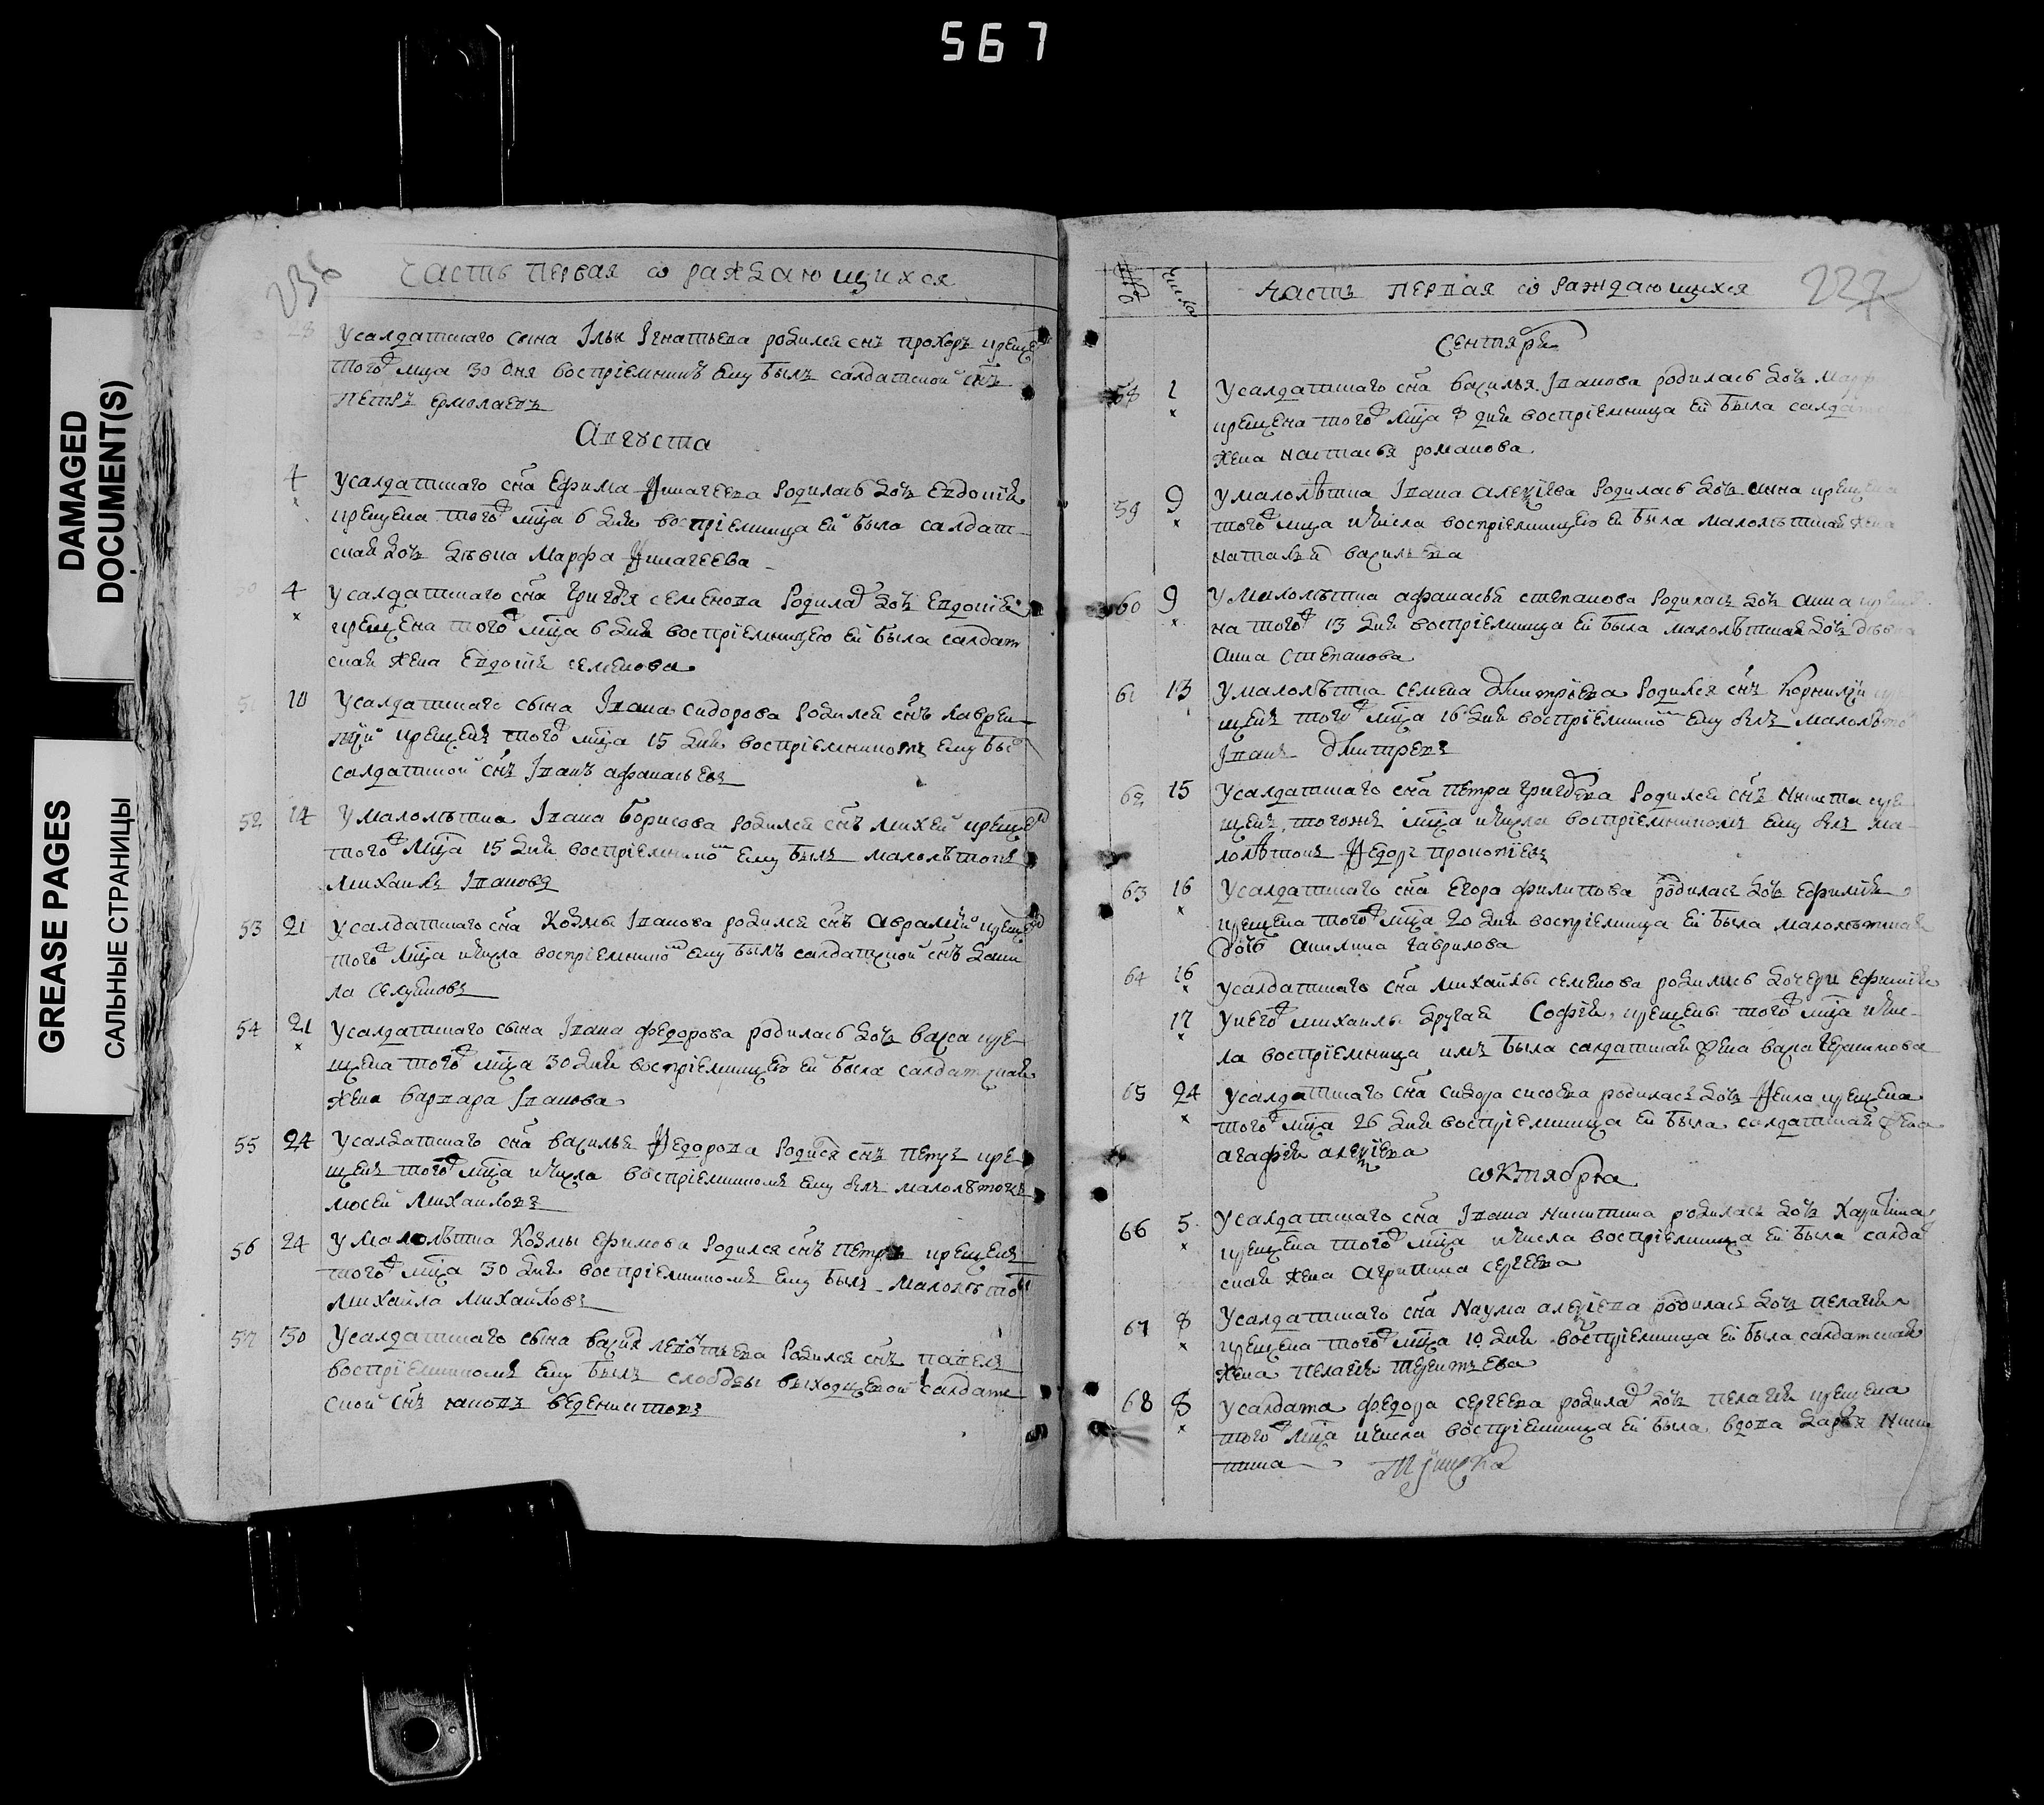 567
DAMAGED
DOCUMENT(S)
GREASE PAGES
САЛЬНЫЕ СТРАНИЦЫ
236
Часть первая ѡ раждающихся
28
У салдатскаго сына Ильи Игнатьева родился снъ прохоръ креще
того мца 30 дня воспрiемникъ ему былъ салдатской снъ
петръ ермолаевъ
Августа
4 У салдатскаго сна Ефима Финагеева родилась дочь Евдокия
крещена того мца 6 дня воспрiемница ей была салдат
ская дочь девка Марфа Финагеева
50 4 У салдатскаго сна Григорья семенова родилас дочь Евдокия
крещена того мца 6 дня воспрiемницею ей была салдат
ская жена Евдокия семенова
51 10 У салдатскаго сына Iвана сидорова родился снъ лаврен
тiй крещенъ того мца 15 дня воспрiемникомъ ему бы
салдатской снъ Iванъ афанасьевъ
52 14 У малолѣтка Iвана борисова родился снъ михей креще
того мца 15 дня воспрiемником ему былъ малолѣтокъ
михаила Iвановъ
53 21 У салдатскаго сна Козмы Iванова родился снъ Аврамiй креще
того мца и числа воспрiемником ему былъ салдатской снъ дани
ла
54 21 У салдатскаго сына Iвана федорова родилась дочь васса кре
щена того мца 30 дня воспрiемницею ей была салдатская
жена варвара Iванова
55 24 У салдатскаго сна василья Федорова родися снъ петръ кре
щенъ того мца и числа воспрiемникомъ ему былъ малолѣтокъ
мосей михаиловъ
56 24 У малолѣтка Козмы Ефимова родился снъ петръ крещенъ
того мца 30 дня воспрiемникомъ ему былъ малолѣто
михаила михаиловъ
57 30 У салдатскаго сына родился снъ павелъ
воспрiемникомъ ему былъ слободы салдат
ской снъ яковъ
227
числа
Часть первая ѡ раждающихся
Сентября
58 1 У салдатскаго сна василья Iванова родилась дочь
крещена того мца 8 дня воспрiемница ей была салдат
жена настасья романова
59 9 У малолѣтка Iвана алексiева родилась дочь крещена
того мца и числа воспрiемницею ей была малолѣтская жена
наталья васильева
60 9 У малолѣтка афанасья степанова родилась дочь анна креще
на того 13 дня воспрiемница ей была малолѣтская дочь девка
анна степанова
61 13 У малолѣтка семена дмитрiева родился снъ Корнилiй кре
щенъ того мца 16 дня воспрiемником ему былъ малолѣто
Iванъ дмитревъ
62 15 У салдатскаго сна петра григорева родился снъ никита кре
щенъ того же мца и числа воспрiемникомъ ему былъ ма
лолѣтокъ Федоръ прокопiевъ
63 16 У салдатскаго сна Егора филипова родилась дочь ефимия
крещена того мца 20 дня воспрiемница ей была малолѣтная
дочь акилина гаврилова
64 16 У салдатскаго сна михайлы семенова родились дочери ефимия
17 У него михаилы другая Софiя крещены того мца и чис
ла воспрiемница имъ была салдатская жена васса
65 24 У салдатскаго сна сидора сысоева родилась дочь крещена
того мца 26 дня воспрiемница ей была салдатская жена
агафия алексiева
ѡктября
66 5 У салдатскаго сна Iвана никитина родилась дочь Харитина
крещена того мца и числа воспрiемница ей была салда
ская жена агрипина сергеева
67 8 У салдатскаго сна Наума алексiева родилась дочь пелагия
крещена того мца 10 дня воспрiемница ей была салдатская
жена пелагия терентьева
68 8 У салдата федора сергеева родилас дочь пелагия крещена
того мца и числа воспрiемница ей была вдова дарья ники
тина